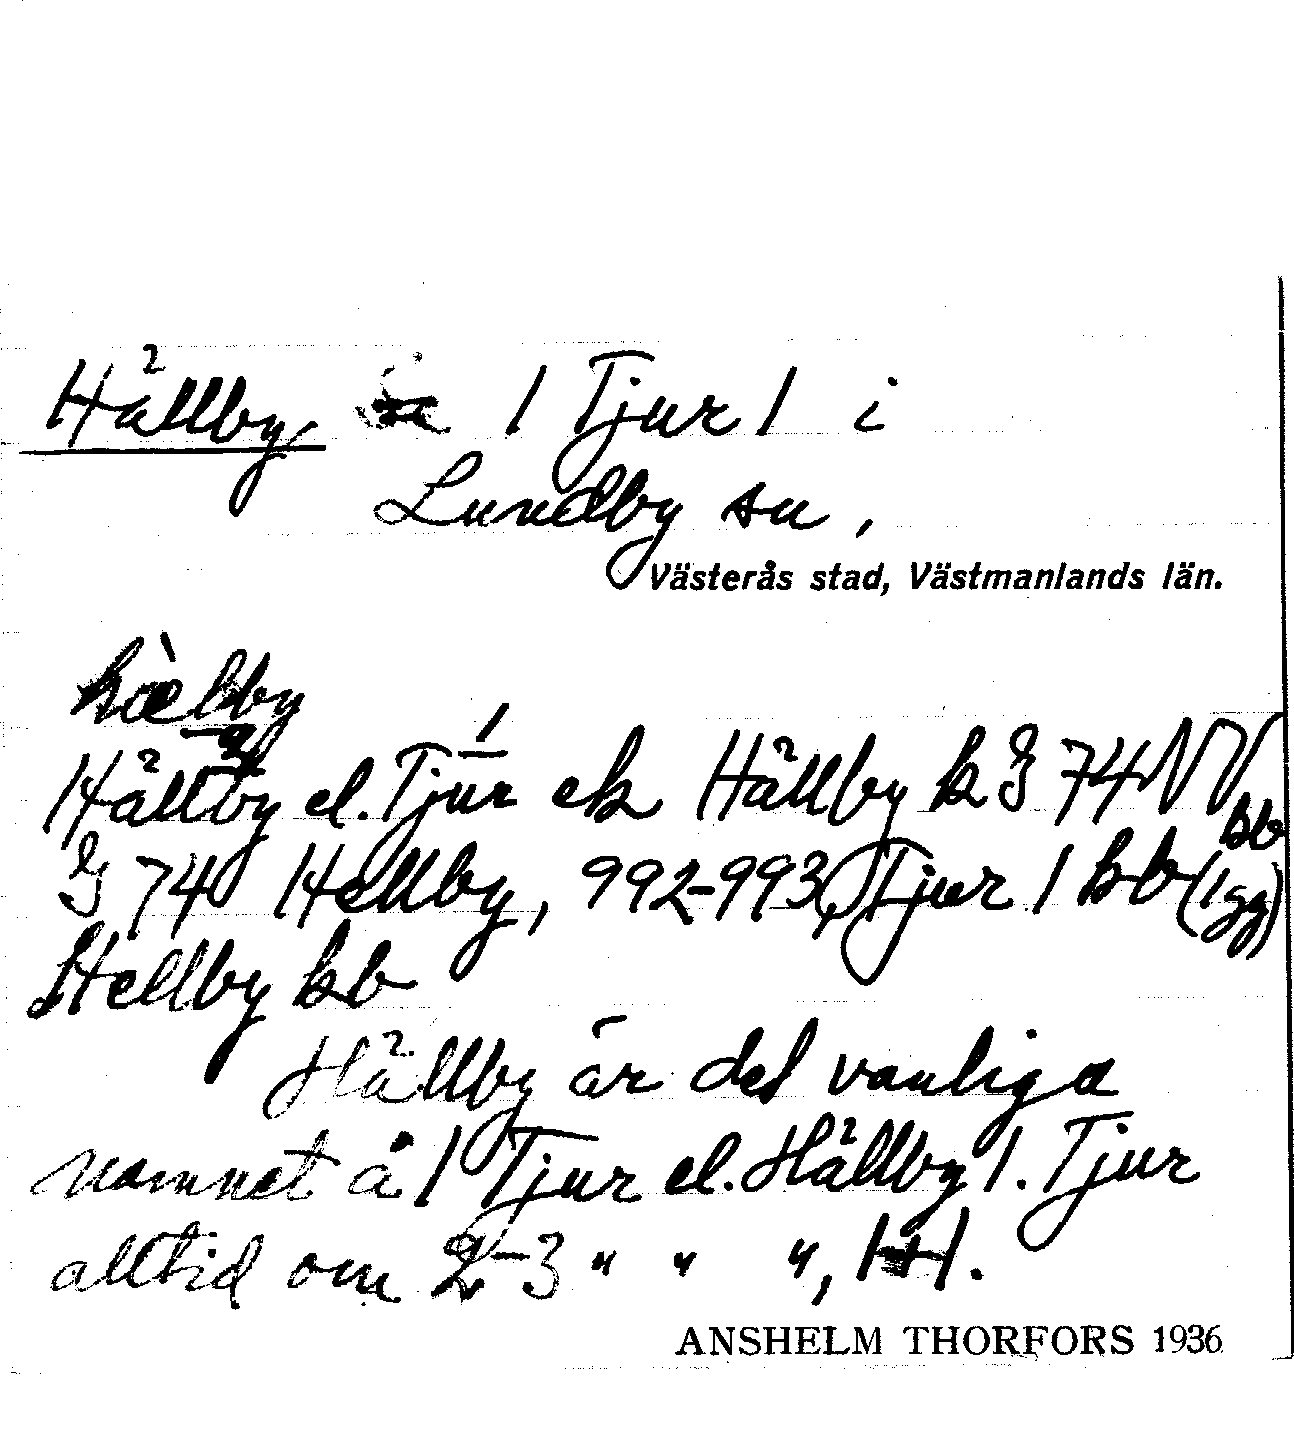 Hällby / Tjur / i
Lundby sn,
Västerås stad, Västmanlands län.
hæ̀lby
Hällby el. Tjur ek Hällby k G 74 NV
bb
G 74 Hellby, 992-993, Tjur 1 kb (1 gg)
Hellby kb
Hällby är det vanliga
namnet å 1 Tjur el. Hällby 1. Tjur
alltid om 2-3 " " ",
ANSHELM THORFORS 1936